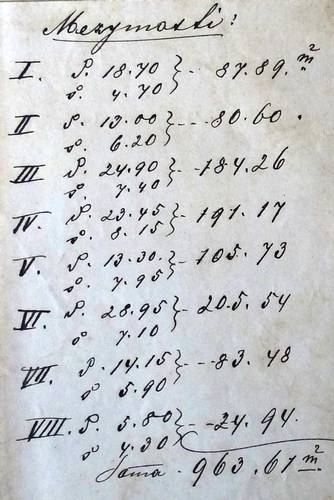 Mezymosti:
I. P. 18.70 } -- 87.89. m²
s. 4.70
II P. 13.00 } --- 80.60.
s. 6.20
III P. 24.90 } -- 184.26
s. 7.40
IV. P. 23.45 } -- 191.17
s. 8.15
V. P. 13.30. } -- 105.73
s. 7.95
VI. P. 28.95 } -- 205.54
s. 7.10
VII. P. 14.15 } -- 83.48
s 5.90
VIII. P. 5.80 } -- 24.94.
s 4.30
Soma. 963.61 m²